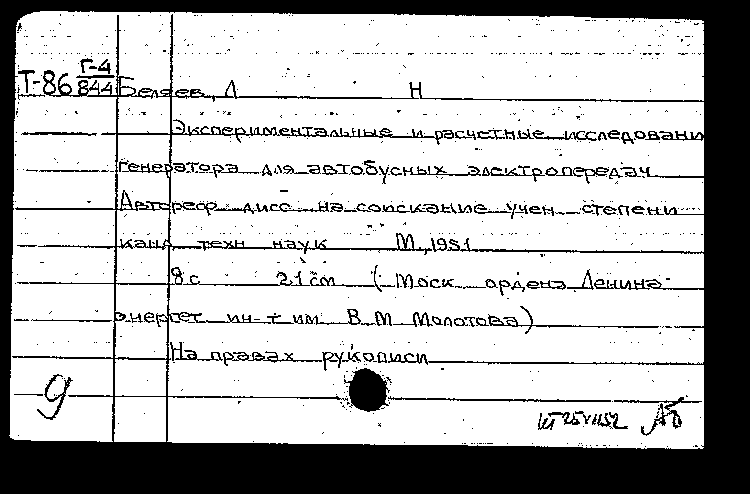 Т-86 Г-4
844 Беляев, Л Н
Экспериментальные и расчетные исследовани
генератора для автобусных электропередач
Автореф дисс на соискание учен степени
канд техн наук М, 1951
8 с 21 см (Моск ордена Ленина
энергет ин-т им В М Молотова)
На правах рукописи
9